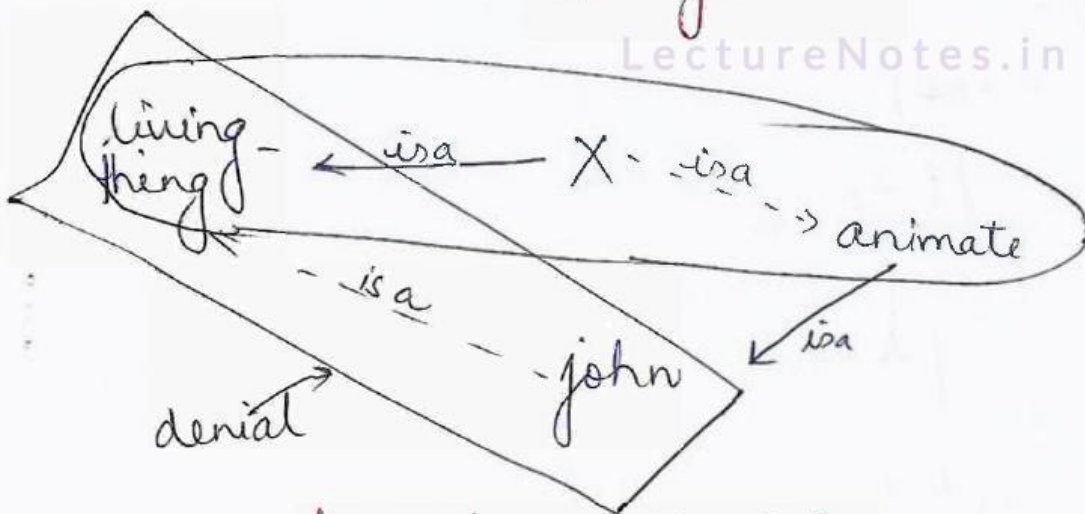 LectureNotes.in
living
thing
isa
X
isa
animate
isa
isa
john
denial